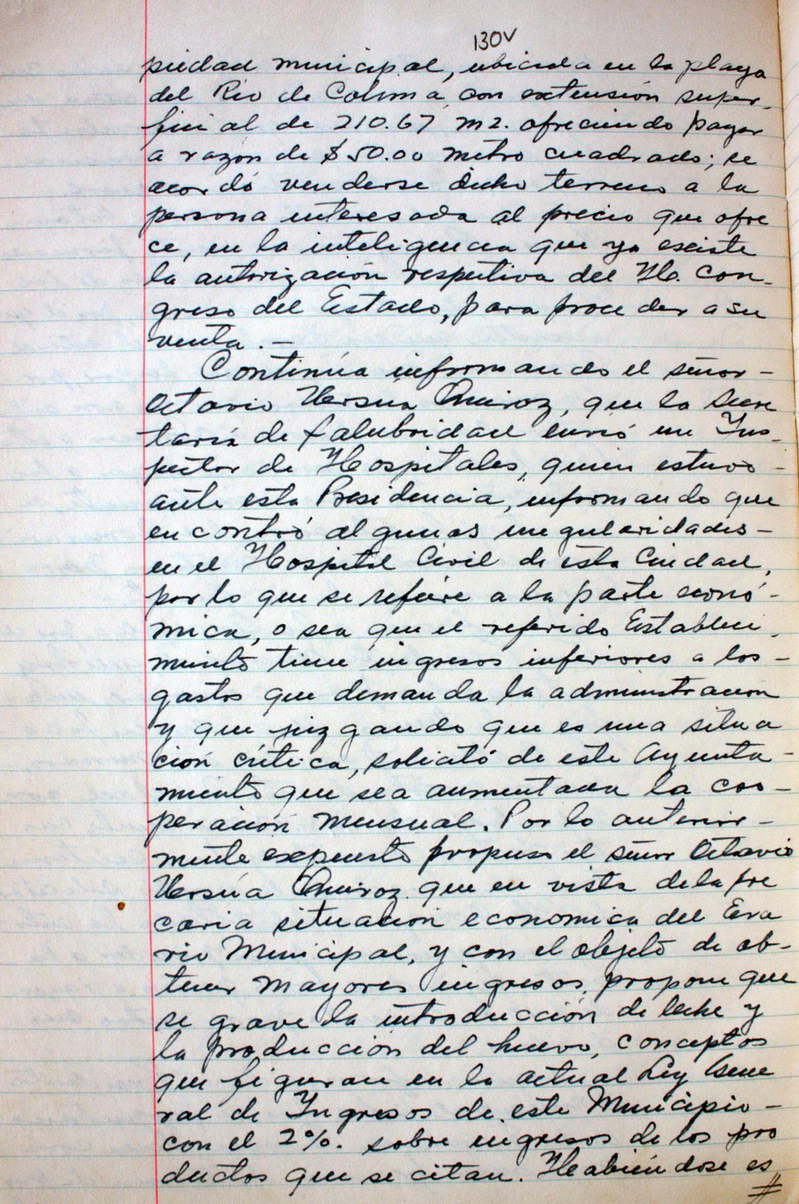 130V
piedad municipal, ubicada en la playa
del Río de Colima, con extensión super-
ficial de 210.67 m2. ofreciendo pagar
a razón de $50.00 metro cuadrado; se
acordó venderse dicho terreno a la
persona interesada al precio que ofre
ce, en la inteligencia que ya existe
la autorización respectiva del H. Con-
greso del Estado, para proceder a su
venta.—
Continúa informando el señor-
Octavio Versúa Quiroz, que la Secre
taría de Salubridad envió un Ins-
pector de Hospitales, quien estuvo-
ante esta Presidencia, informando que
encontró algunas irregularidades-
en el Hospital Civil de esta Ciudad,
por lo que se refiere a la parte econó-
mica, o sea que el referido Estableci-
miento tiene ingresos inferiores a los-
gastos que demanda la administración
y que juzgando que es una situa
ción crítica, solicitó de este Ayunta-
miento que sea aumentada la coo-
peración mensual. Por lo anterior-
mente expuesto propuso el señor Octavio
Versúa Quiroz que en vista de la pre
caria situación economica del Era
rio Municipal, y con el objeto de ob-
tener mayores ingresos, propone que
se grave la introducción de leche y
la producción del huevo, conceptos
que figuran en la actual Ley Gene
ral de Ingresos de este Municipio-
con el 2%. sobre ingresos de los pro
ductos que se citan. Habiéndose es